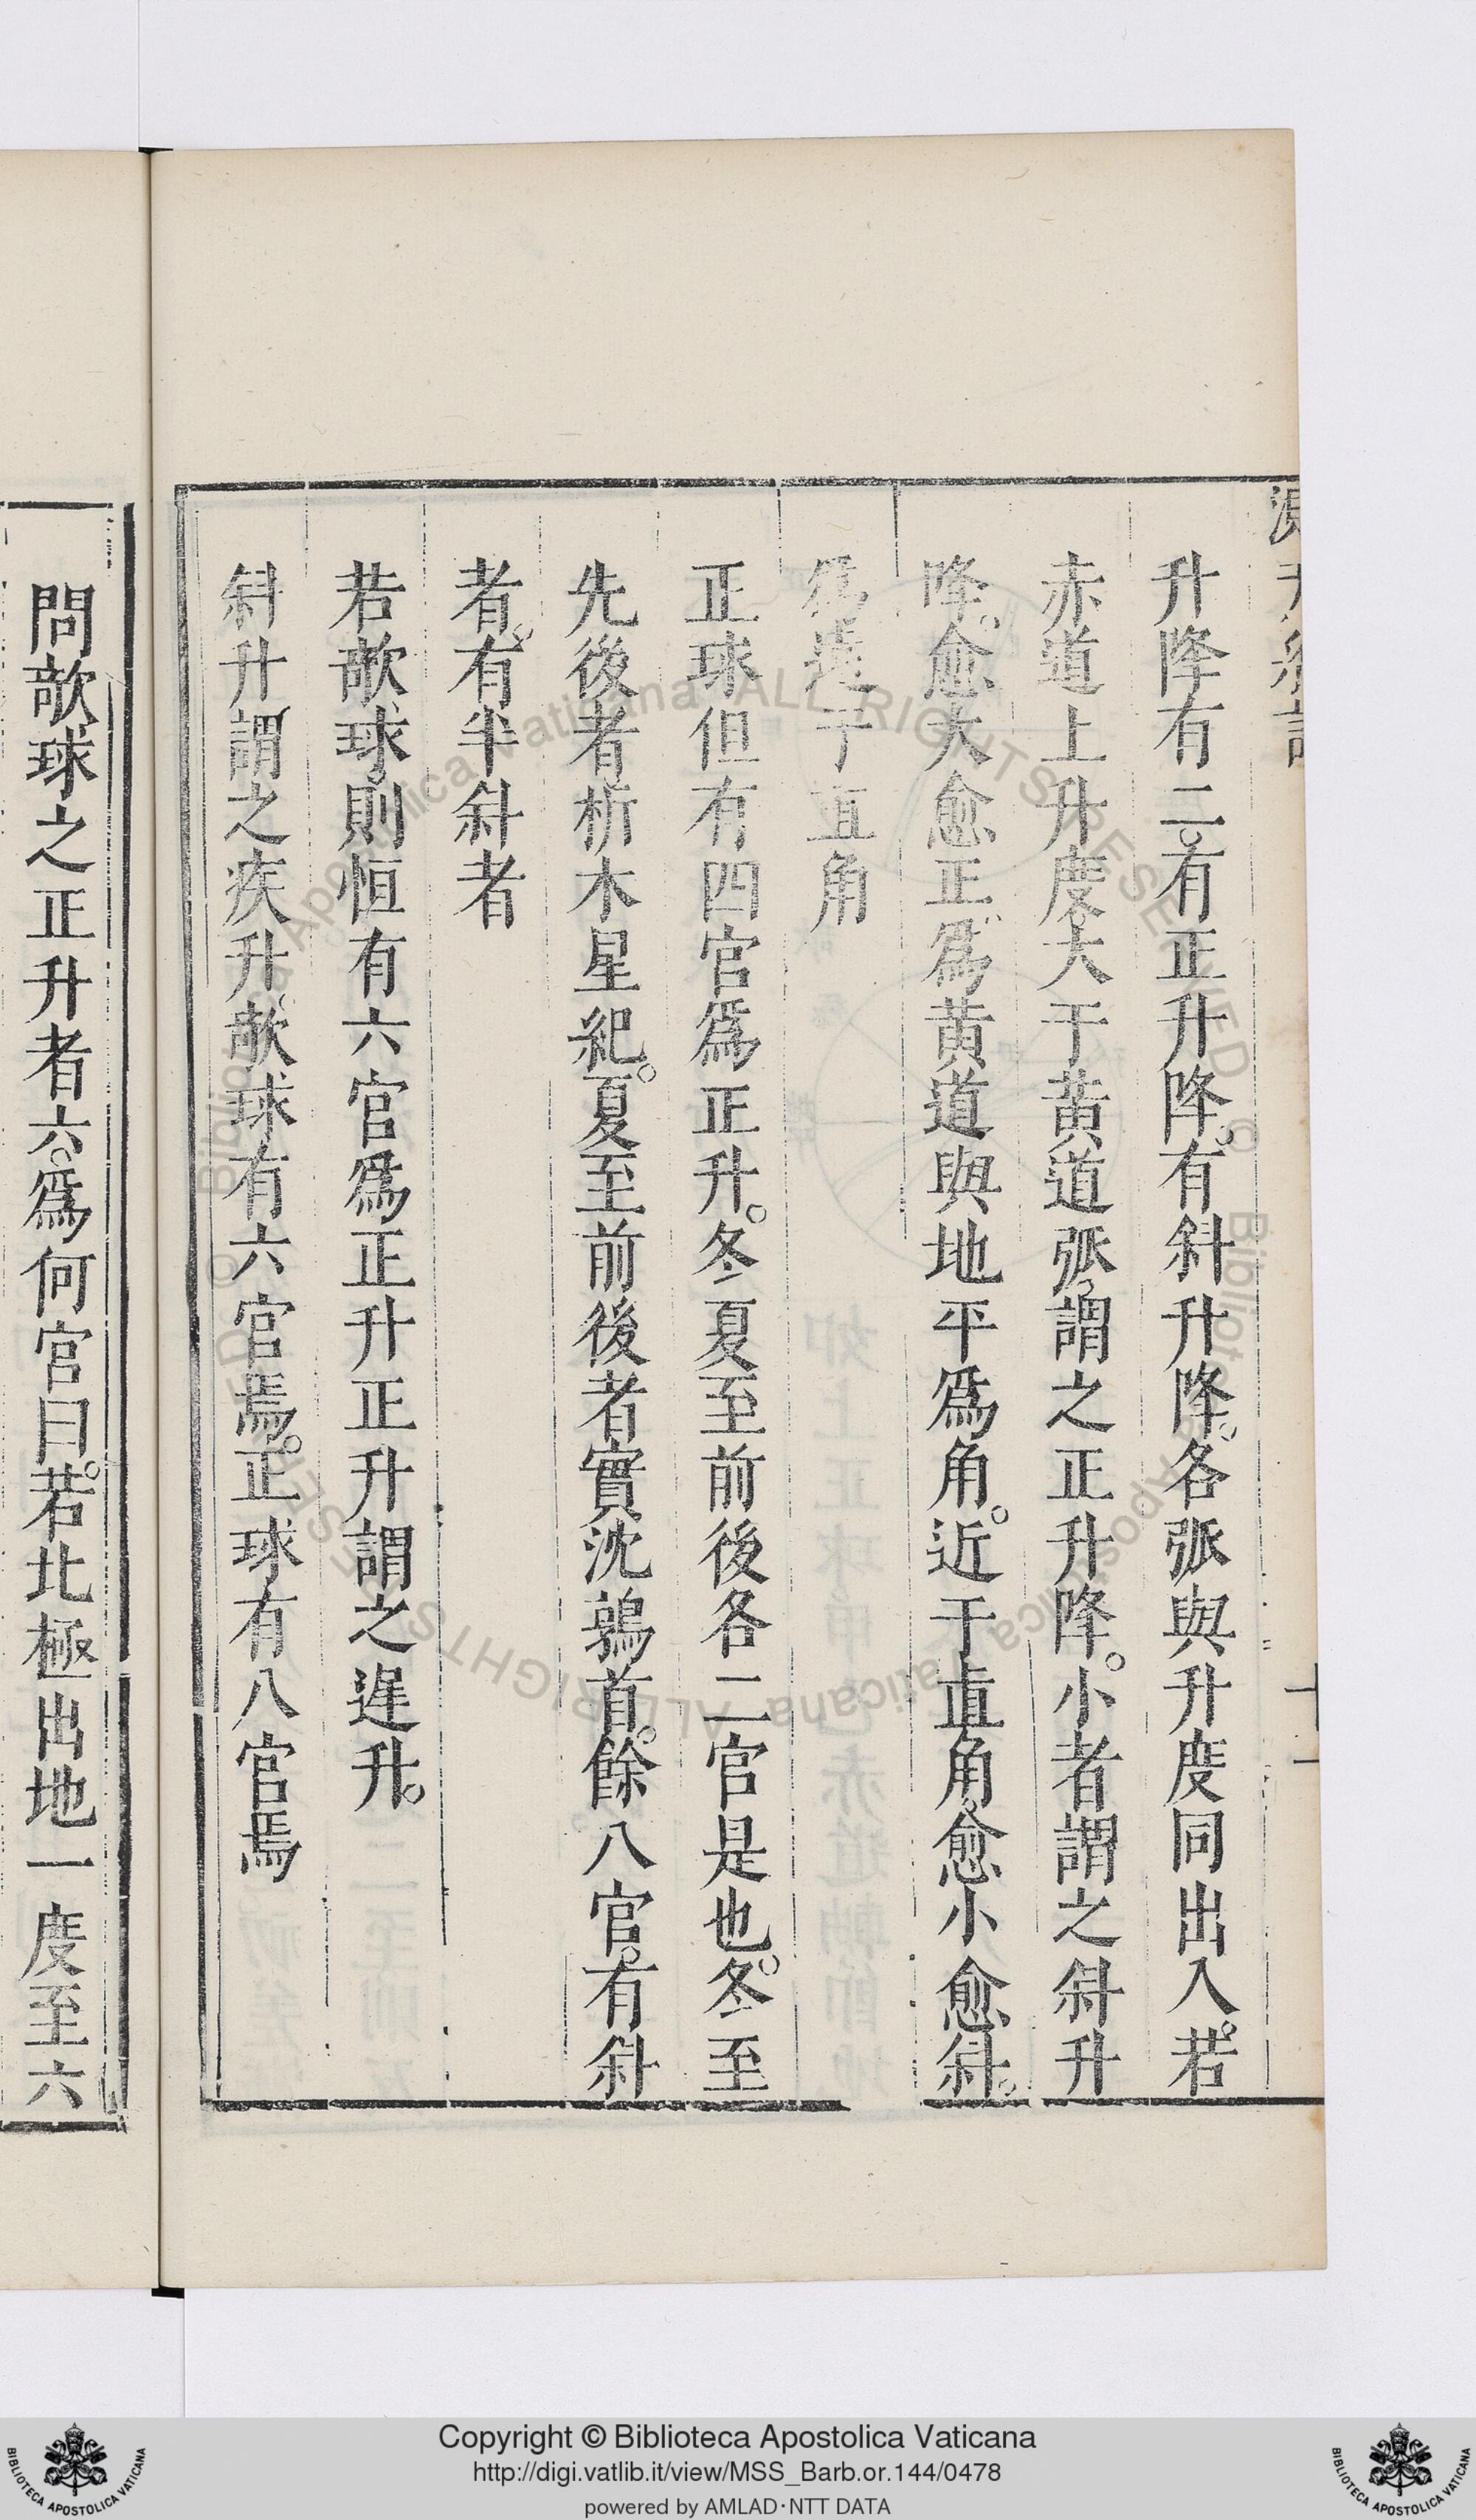 升降有二。有正升降。有斜升降。各弧與升度同出入。若
赤道上升度大于黄道弧。謂之正升降。小者謂之斜升
降。愈大愈正。爲黄道與地平爲角。近于直角。愈小愈斜。
爲遠于直角
正球但有四宫爲正升。冬夏至前後各二宫是也。冬至
先後者析木星紀。夏至前後者實沈鶉首。餘八宫。有斜
者。有半斜者
若欹球。則恒有六宫爲正升正升謂之遲升。
斜升謂之疾升。欹球有六宫焉。正球有八宫焉
問欹球之正升者六。爲何宫曰。若北極出地一度至六
Copyright © Biblioteca Apostolica Vaticana
http://digi.vatlib.it/view/MSS_Barb.or.144/0478
powered by AMLAD·NTT DATA
BIBLIOTECA APOSTOLICA VATICANA
BIBLIOTECA APOSTOLICA VATICANA